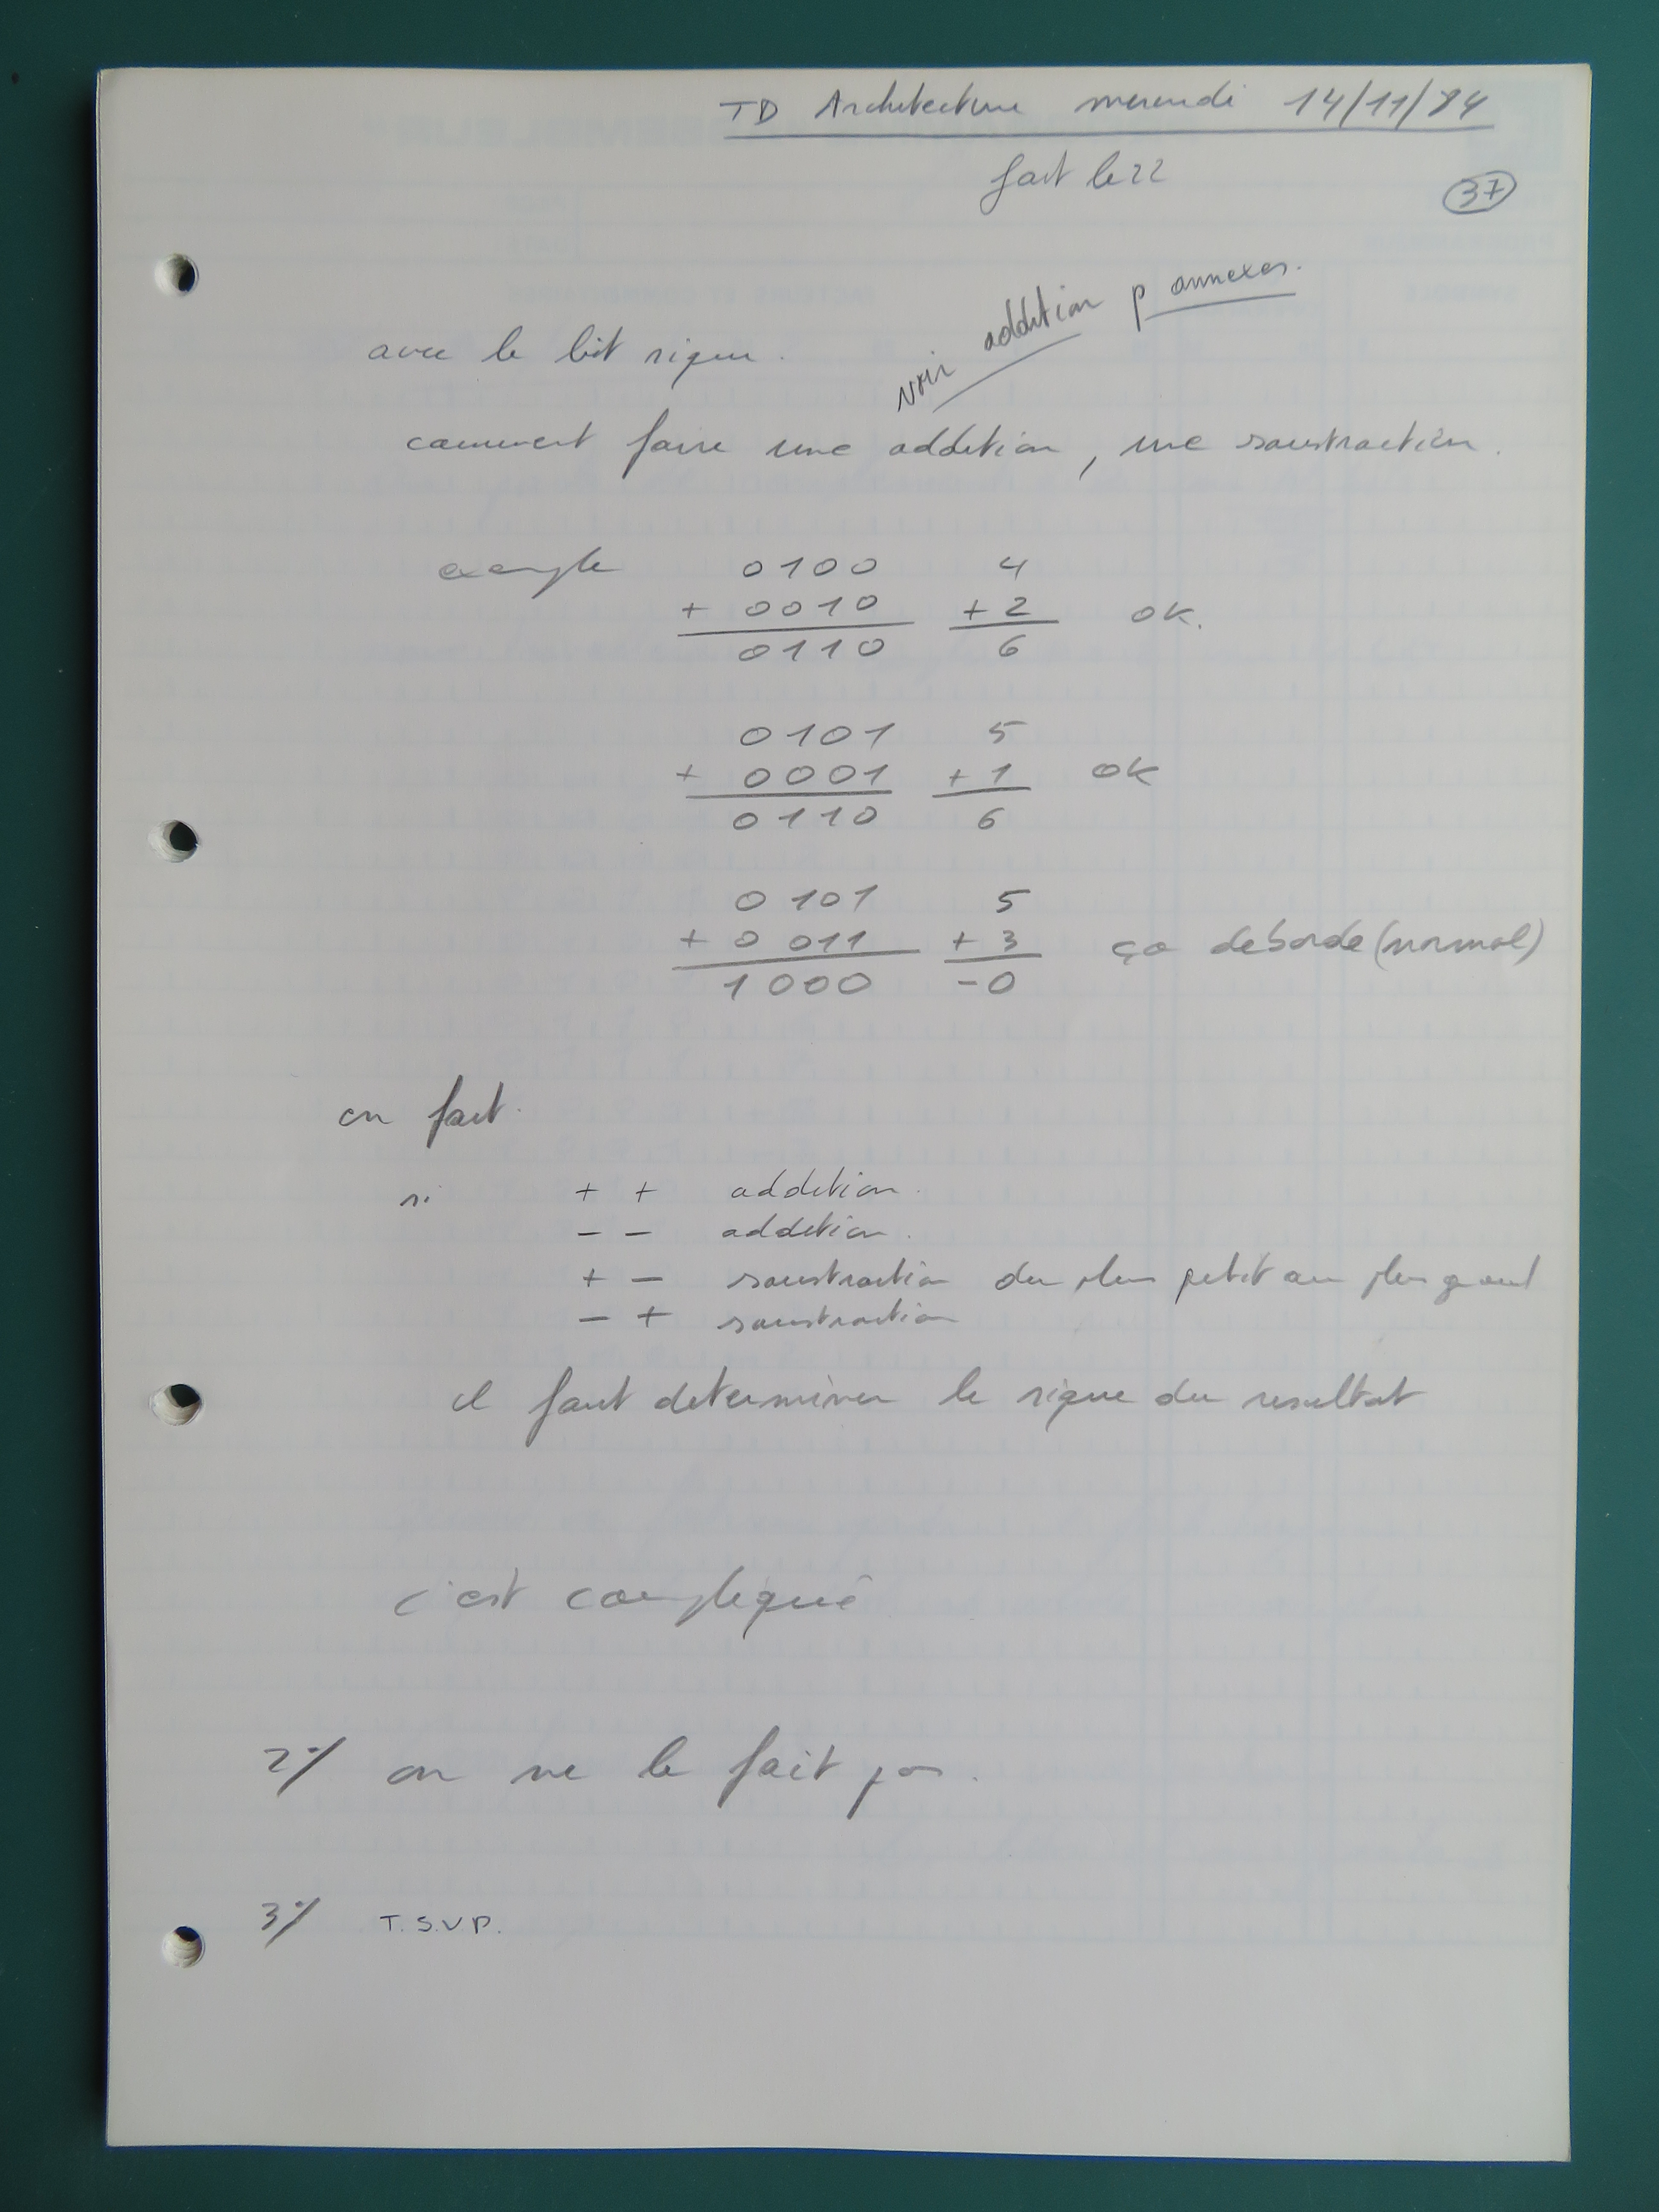 TD Architecture mercredi 14/11/84
fait le 22
37
voir addition p annexes.
avec le bit signe.
comment faire une addition, une soustraction.
exemple 0100 4
+ 0010 + 2 OK.
0110 6
0101 5
+ 0001 + 1 OK
0110 6
0101 5
+ 0011 + 3 ça deborde (normal)
1000 -0
on fait.
si + + addition.
- - addition.
+ - soustraction du plus petit au plus grand
- + soustraction
il faut determiner le signe du resultat
c'est compliqué
2°/ on ne le fait pas.
3°/ T.S.V.P.